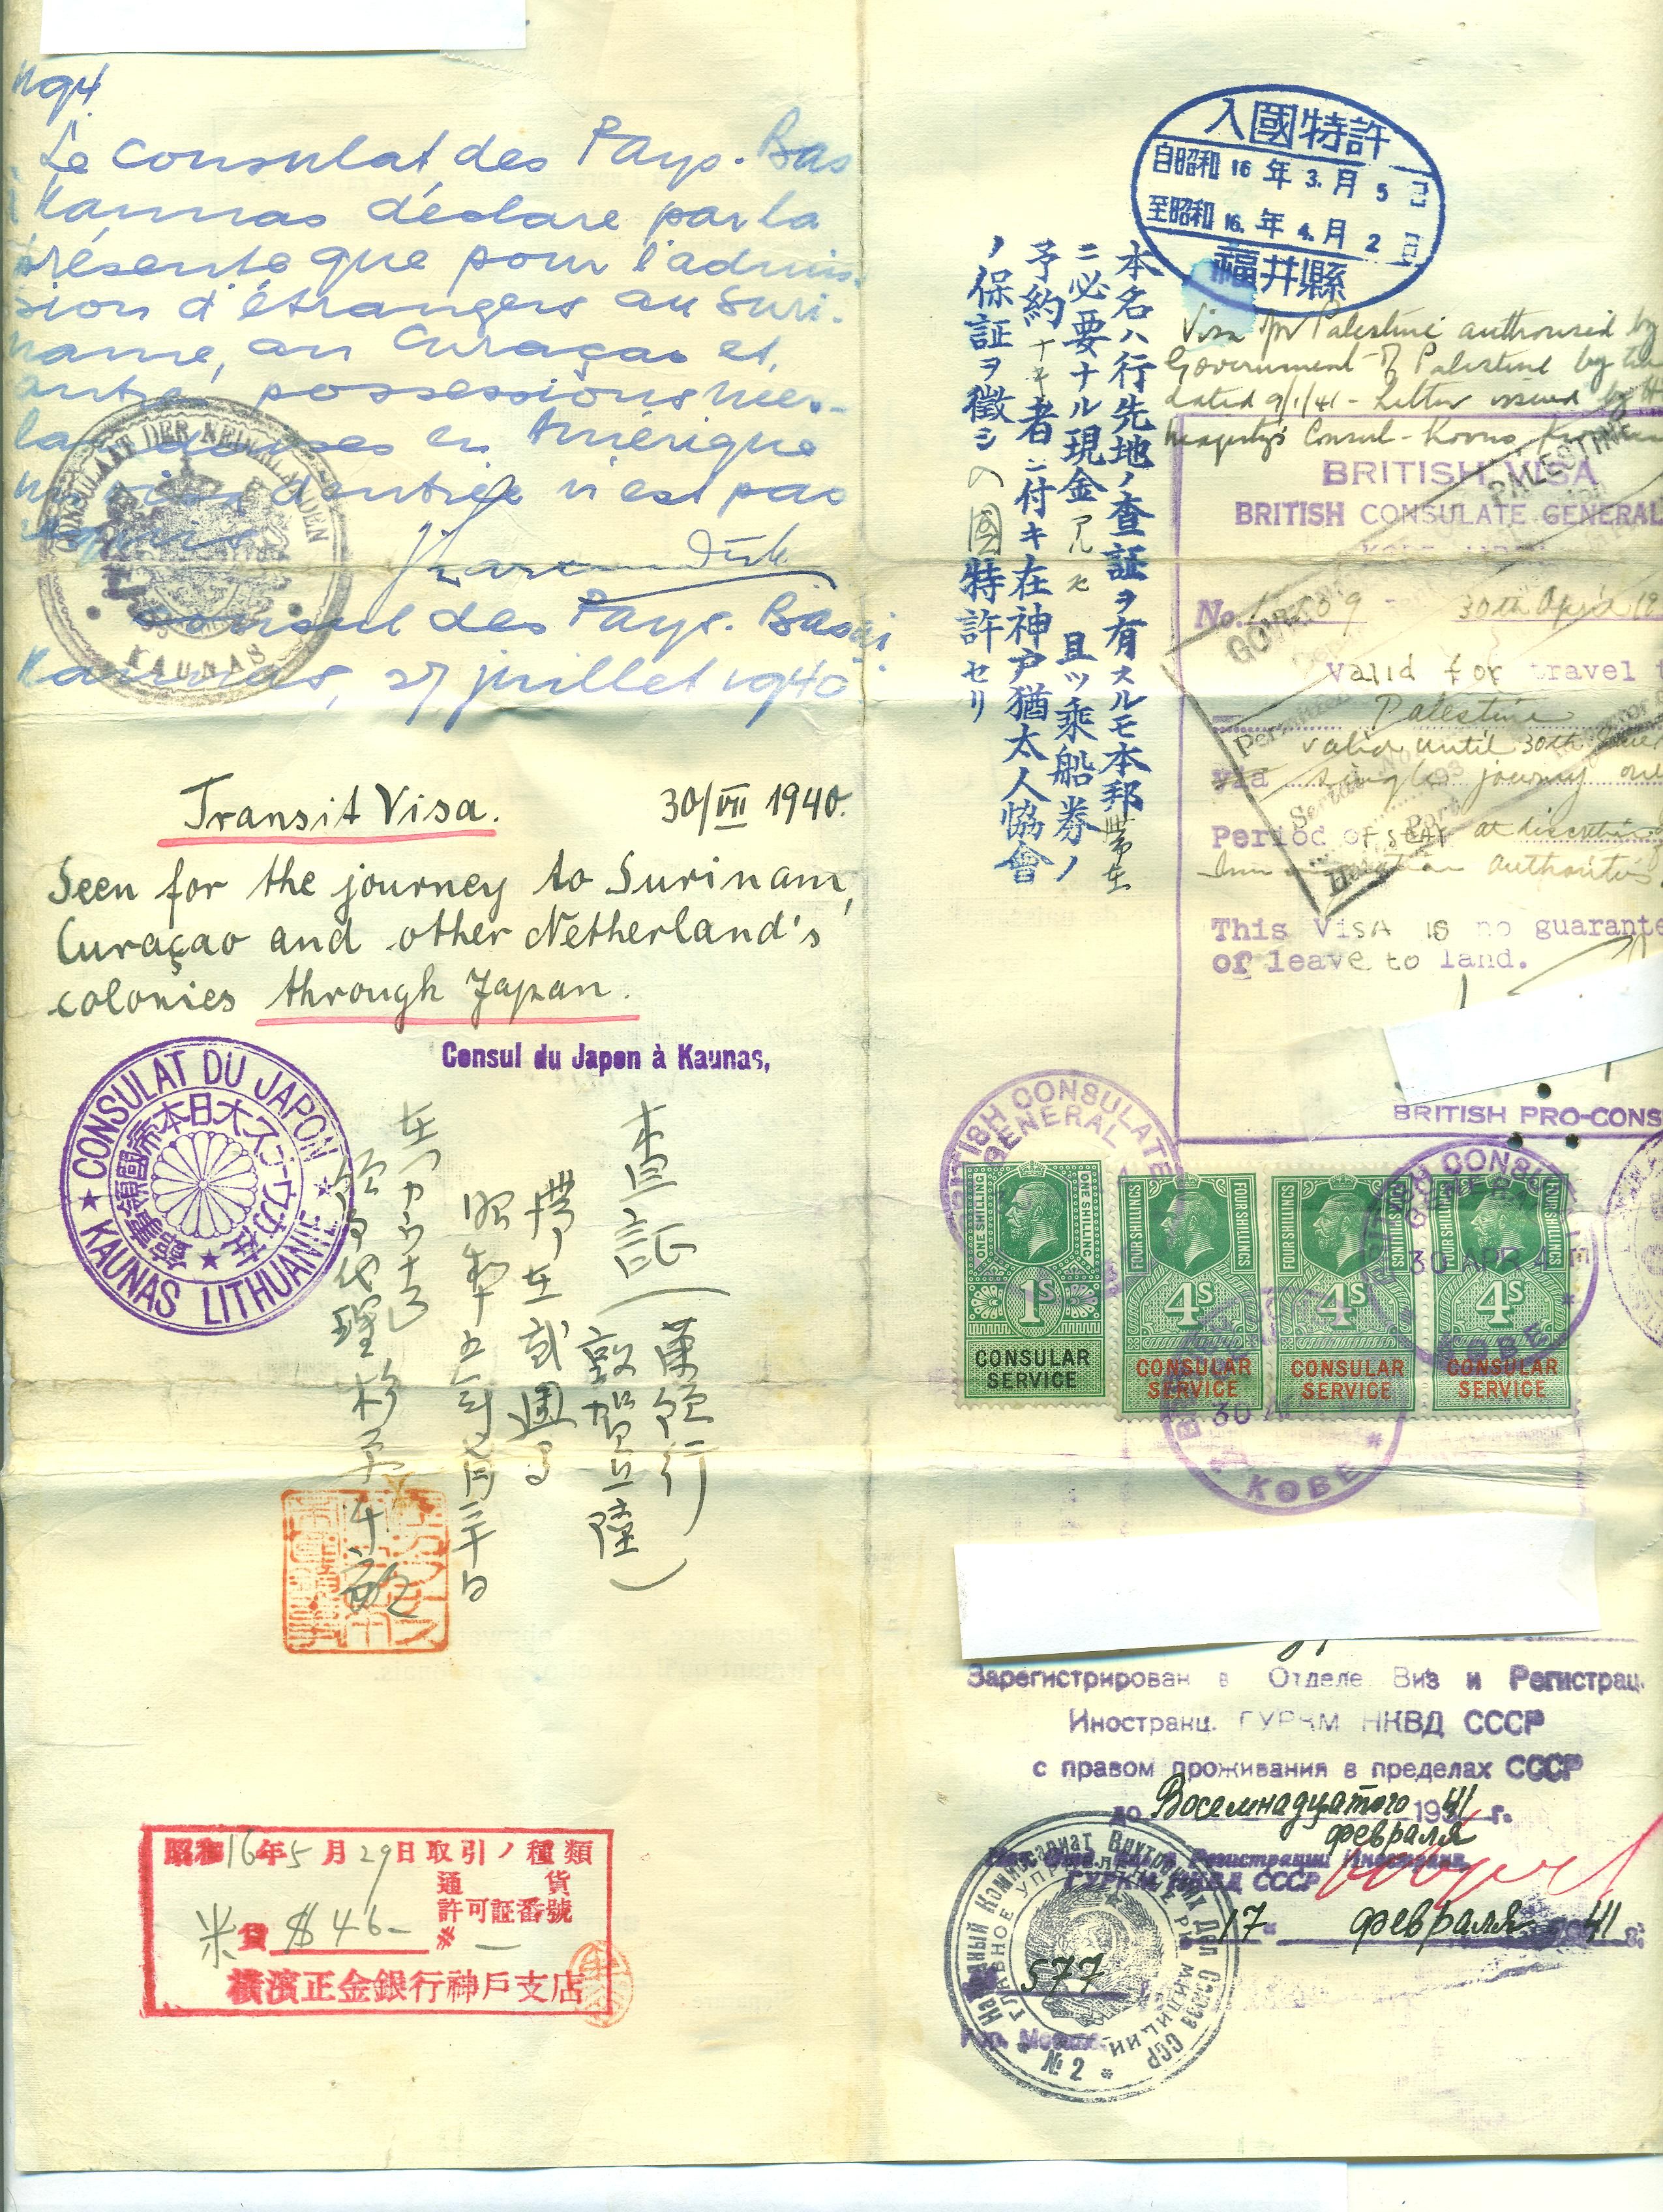 Le Consulat des Pays-Bas
Kaunas déclare par la
présente que pour l'admis-
sion d'étrangers au Suri-
name, au Curaçao et
autres possessions néer-
landaises en Amérique
un visa d'entrée n'est pas
requis
Consul des Pays-Bas
Kaunas, 27 juillet 1940
CONSULAAT DER NEDERLANDEN
KAUNAS
Transit Visa. 30/VII 1940.
Seen for the journey to Surinam,
Curaçao and other Netherland's
colonies through Japan.
Consul du Japon à Kaunas,
CONSULAT DU JAPON
KAUNAS LITHUANIE
査証(蘭領行
敦賀上陸)
昭和
領事代理杉原千畝
昭和16年5月29日取引ノ種類
通貨
許可証番號
米貨 $46- # —
横濱正金銀行神戸支店
入國特許
自昭和16年3.月5日
至昭和16.年4.月2日
福井縣
本名ハ行先地ノ査証ヲ有スルモ本邦滯在
ニ必要ナル現金 且ツ乘船券ノ
予約ナキ者ニ付キ在神戸猶太人協會
ノ保証ヲ徴シ入國特許セリ
Visa for Palestine authorised by
Government of Palestine by
dated 9/1/41 - Letter issued by H
Majesty's Consul - Kovno
BRITISH VISA
BRITISH CONSULATE GENERAL
No. 30th April 19
Valid for travel t
Palestine
valid until 30th
via single journey
Period of stay at discretion
Immigration authorities.
This Visa is no guarante
of leave to land.
PALESTINE
BRITISH PRO-CONS
BRITISH CONSULATE GENERAL
ONE SHILLING
ONE SHILLING
1S
CONSULAR
SERVICE
FOUR SHILLINGS
FOUR SHILLINGS
4S
CONSULAR
SERVICE
FOUR SHILLINGS
FOUR SHILLINGS
4S
CONSULAR
SERVICE
FOUR SHILLINGS
4S
CONSULAR
SERVICE
30 APR 41
KOBE
KOBE
Зарегистрирован в Отделе Виз и Регистрац.
Иностранц. ГУРКМ НКВД СССР
с правом проживания в пределах СССР
до Восемнадцатого 1941 г.
февраля
Регистрации Иностранц.
ГУРКМ НКВД СССР
17 февраля 41 г.
577
Гор. Москва
Народный Коммисариат Внутренних Дел Союза ССР
ГЛАВНОЕ УПРАВЛЕНИЕ РК МИЛИЦИИ
№ 2